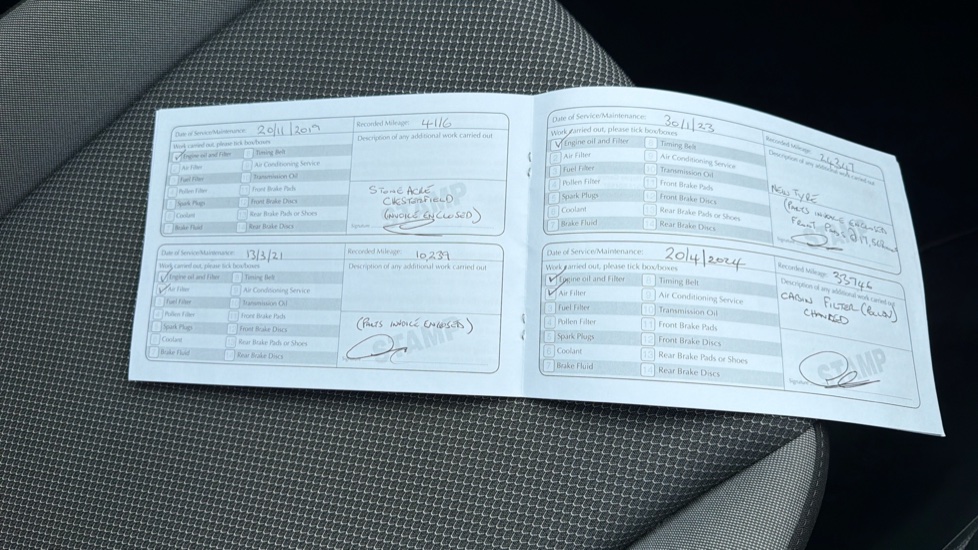 Date of Service/Maintenance: 20/11/2019
Recorded Mileage: 4116
Work carried out, please tick box/boxes
Description of any additional work carried out
Engine oil and Filter
Timing Belt
Air Filter
Air Conditioning Service
Fuel Filter
Transmission Oil
Pollen Filter
Front Brake Pads
Spark Plugs
Front Brake Discs
Coolant
Rear Brake Pads or Shoes
Brake Fluid
Rear Brake Discs
STONEACRE
CHESTERFIELD
(INVOICE ENCLOSED)
STAMP
Signature
Date of Service/Maintenance: 13/3/21
Recorded Mileage: 10239
Work carried out, please tick box/boxes
Description of any additional work carried out
Engine oil and Filter
Timing Belt
Air Filter
Air Conditioning Service
Fuel Filter
Transmission Oil
Pollen Filter
Front Brake Pads
Spark Plugs
Front Brake Discs
Coolant
Rear Brake Pads or Shoes
Brake Fluid
Rear Brake Discs
(PARTS INVOICE ENCLOSED)
STAMP
Date of Service/Maintenance: 30/1/23
Recorded Mileage:
Work carried out, please tick box/boxes
Description of any additional work carried out
Engine oil and Filter
Timing Belt
Air Filter
Air Conditioning Service
Fuel Filter
Transmission Oil
Pollen Filter
Front Brake Pads
Spark Plugs
Front Brake Discs
Coolant
Rear Brake Pads or Shoes
Brake Fluid
Rear Brake Discs
NEW TYRE
(PARTS INVOICE ENCLOSED
Signature
Date of Service/Maintenance: 20/4/2024
Recorded Mileage: 33746
Work carried out, please tick box/boxes
Description of any additional work carried out
Engine oil and Filter
Timing Belt
Air Filter
Air Conditioning Service
Fuel Filter
Transmission Oil
Pollen Filter
Front Brake Pads
Spark Plugs
Front Brake Discs
Coolant
Rear Brake Pads or Shoes
Brake Fluid
Rear Brake Discs
CABIN FILTER (POLLEN)
CHANGED
STAMP
Signature